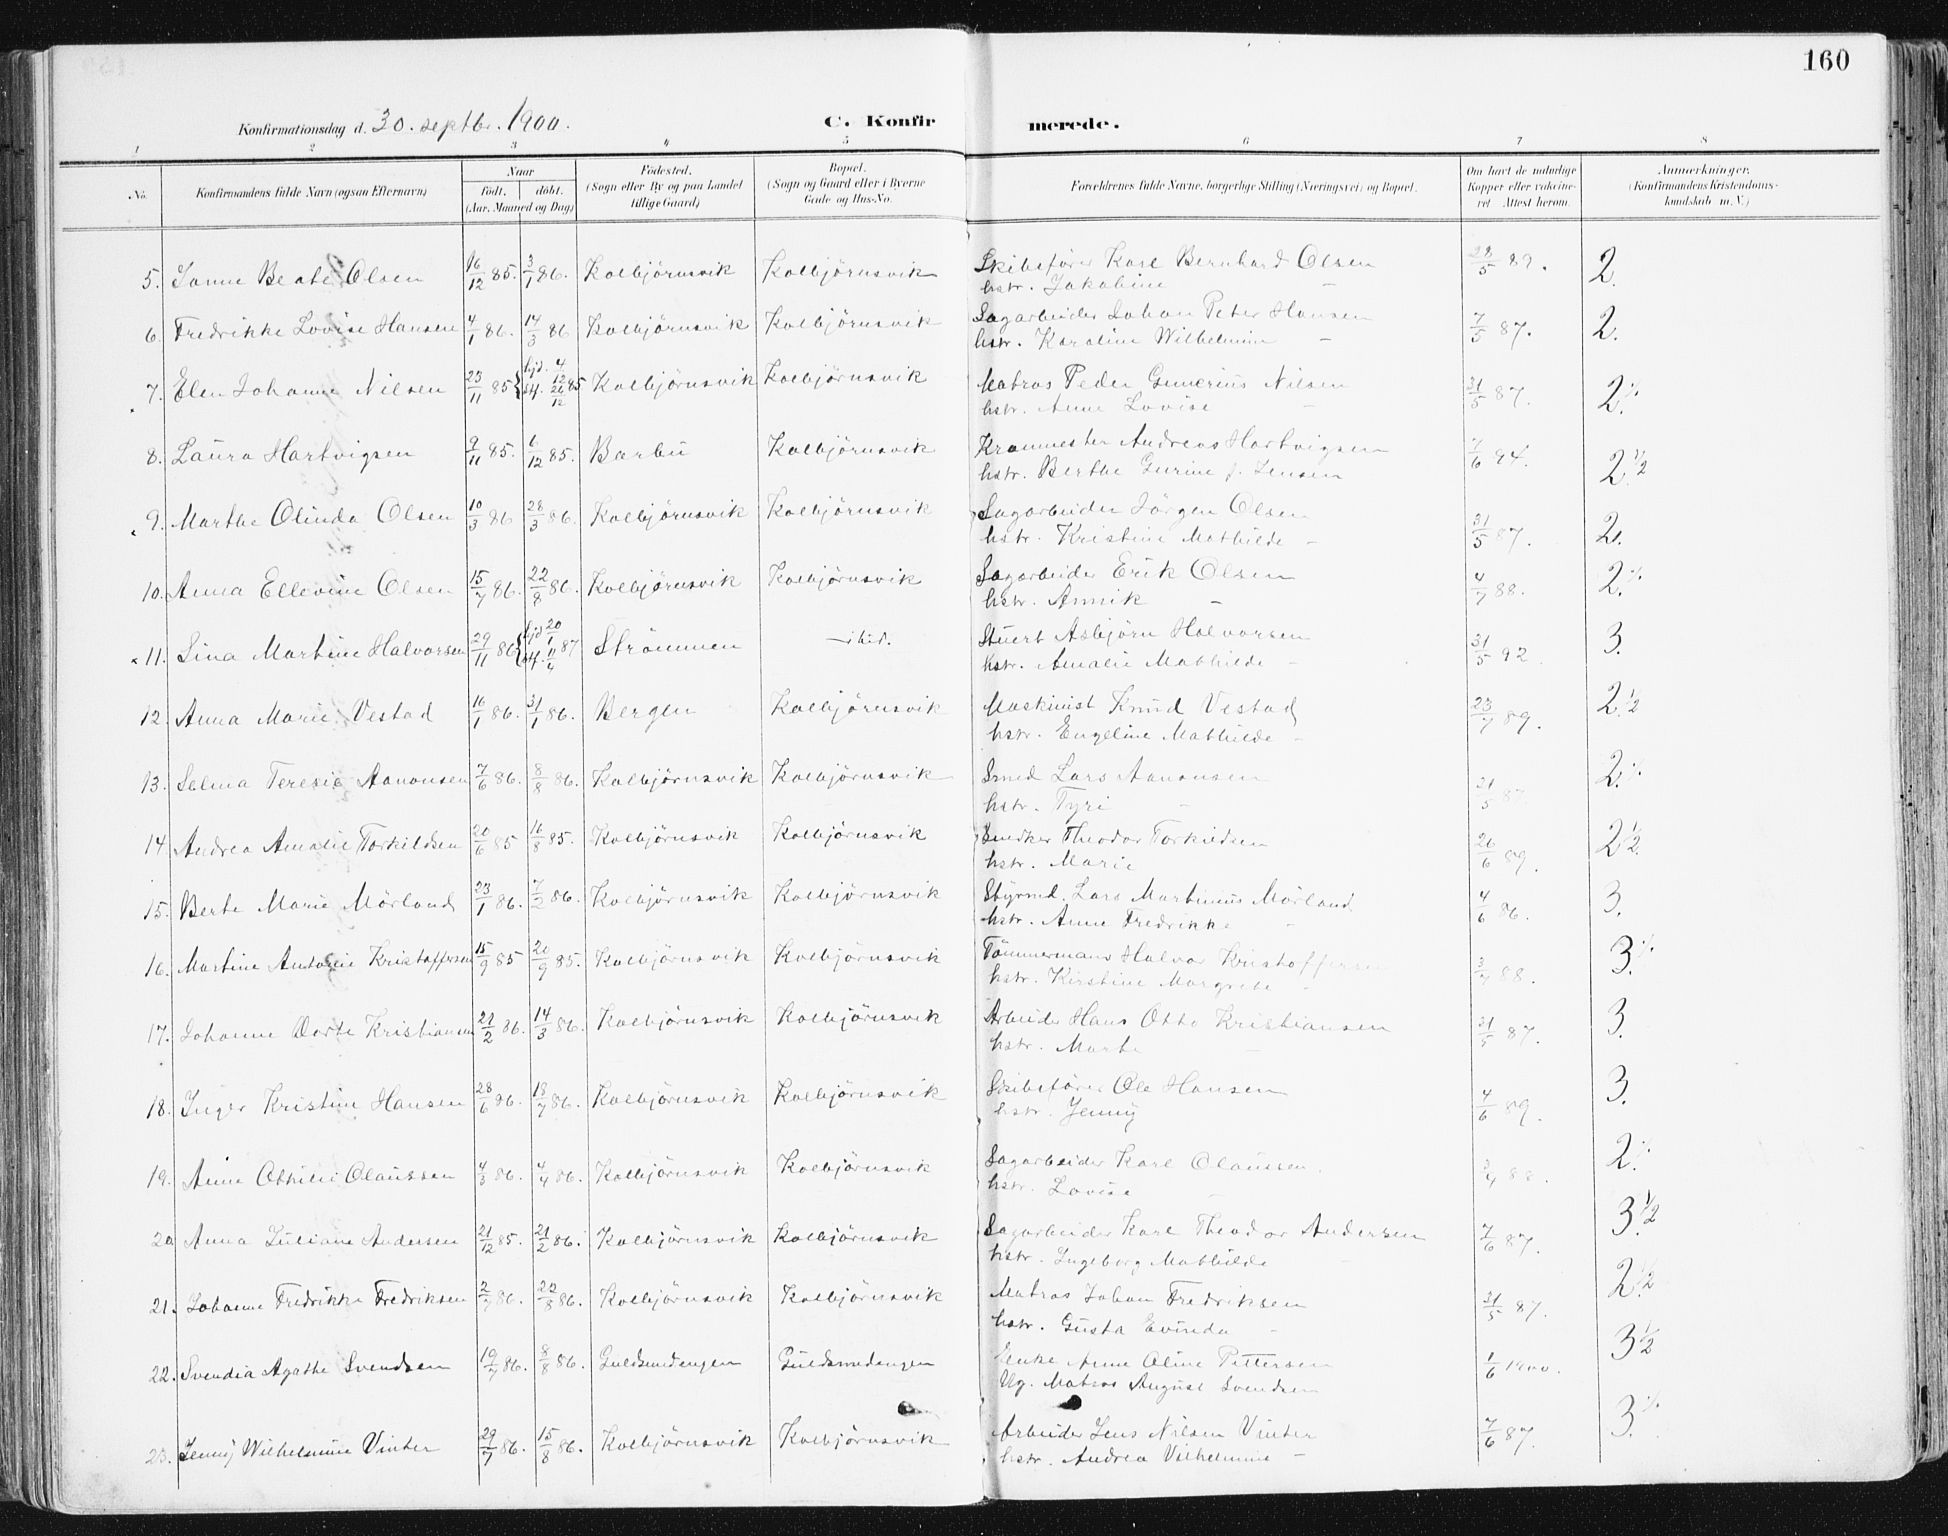 160
Konfirmationsdag d. 30. septbr. 1900.
C. Konfirmerede.
1 2 3 4 5 6 7 8
No. Konfirmandens fulde Navn (ogsaa Efternavn) Naar født. døbt. (Aar, Maaned og Dag) Fødested. (Sogn eller By og paa Landet tillige Gaard) Bopæl. (Sogn og Gaard eller i Byerne Gade og Hus-No. Forældrenes fulde Navne, borgerlige Stilling (Næringsvei) og Bopæl. Om havt de naturlige Kopper eller vaccineret. Attest herom. Anmærkninger. (Konfirmandens Kristendomskundskab m. V.)
5. Janne Beate Olsen 16/12 85. 3/1 86. Kolbjörnsvik Kolbjörnsvik Skibsförer Karl Bernhard Olsen 28/5 89. 2.
hstr. Jakobine –
6. Fredrikke Lovise Hansen 4/1 86. 14/3 86 Kolbjörnsvik Kolbjörnsvik Sagarbeider Johan Peter Hansen 7/5 87. 2.
hstr. Karoline Wilhelmine –
7. Elen Johanne Nilsen 23/11 85 { hjd. 4/12 st. 26/12 85 Kolbjörnsvik Kolbjörnsvik Matros Peder Gunerius Nilsen 31/5 87. 2.%
hstr. Anne Lovise –
8. Laura Hartvigsen 9/11 85. 6/12 85. Barbu Kolbjörnsvik Andreas Hartvigsen 7/6 94. 2 1/2
hstr. Berthe Gurine f. Jensen
9. Marthe Olinda Olsen 10/3 86 28/3 86. Kolbjörnsvik Kolbjörnsvik Sagarbeider Jörgen Olsen 31/5 87. 2.
hstr. Kristine Mathilde –
10. Anna Ellevine Olsen 15/7 86. 22/8 86. Kolbjörnsvik Kolbjörnsvik Sagarbeider Erik Olsen 4/7 88. 2.%
hstr. Annik –
11. Sina Martine Halvorsen 29/11 86 { hjd 20/1 st. 11/4 87 Strömmen – ibid. Stuert Asbjörn Halvorsen 31/5 92. 3.
hstr. Amalie Mathilde –
12. Anna Marie Vestad 16/1 86. 31/1 86. Bergen Kolbjörnsvik Maskinist Knud Vestad 23/7 89. 2 1/2
hstr. Engeline Mathilde –
13. Selma Teresie Aanonsen 7/6 86. 8/8 86. Kolbjörnsvik Kolbjörnsvik Smed Lars Aanonsen 21/5 87. 2.%
hstr. Tyri –
14. Andrea Amalie Torkildsen 20/6 85 16/8 85. Kolbjörnsvik Kolbjörnsvik Snedker Theodor Torkildsen 26/6 89. 2 1/2
hstr. Marie
15. Berte Marie Mörland 23/1 86. 7/2 86. Kolbjörnsvik Kolbjörnsvik Styrmd. Lars Martinius Mörland 4/6 86. 3.
hstr. Anne Fredrikke –
16. Martine Antonie Kristoffersen 15/9 85 20/9 85. Kolbjörnsvik Kolbjörnsvik Tömmermand Halvor Kristoffersen 3/7 88. 3.%
hstr. Kirstine Margrete –
17. Johanne Dorte Kristiansen 22/2 86. 14/3 86. Kolbjörnsvik Kolbjörnsvik Arbeider Hans Otto Kristiansen 31/5 87. 3.
hstr. Marte –
18. Inger Kristine Hansen 28/6 86. 18/7 86. Kolbjörnsvik Kolbjörnsvik Skibsförer Ole Hansen 4/6 89. 3.
hstr. Jenny
19. Anne Othilie Olaussen 4/3 86. 4/4 86. Kolbjörnsvik Kolbjörnsvik Sagarbeider Karl Olaussen 3/4 88. 2.%
hstr. Lovise –
20 Anna Juliane Andersen 21/12 85. 21/2 86. Kolbjörnsvik Kolbjörnsvik Sagarbeider Karl Theodor Andersen 7/6 87. 3 1/2
hstr. Ingeborg Mathilde –
21. Johanne Fredrikke Fredriksen 2/7 86. 22/8 86. Kolbjörnsvik Kolbjörnsvik Matros Johan Fredriksen 31/5 87. 2 1/2
hstr. Gusta Evinda –
22. Svendia Agathe Svendsen 19/7 86. 8/8 86. Guldsmedengen Guldsmedengen Enke Anne Oline Pettersen 1/6 1900. 3 1/2
Ug. Matros August Svendsen
23. Jenny Wilhelmine Vinter 29/7 86. 15/8 86. Kolbjörnsvik Kolbjörnsvik Arbeider Jens Nilsen Vinter 7/6 87. 3.%
hstr. Andrea Vilhelmine –